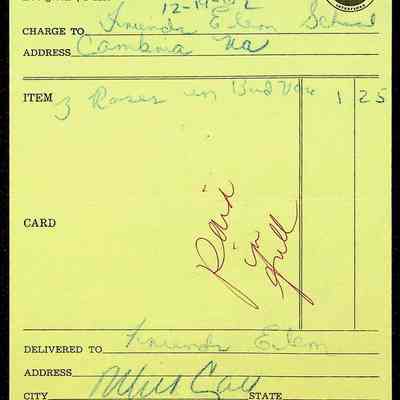 CHARGE TO Friends Elem School
ADDRESS Cambria Va
ITEM 3 Roses in Bud Vase 1 25
Paid
in
full
CARD
DELIVERED TO Friends Elem
ADDRESS
CITY STATE